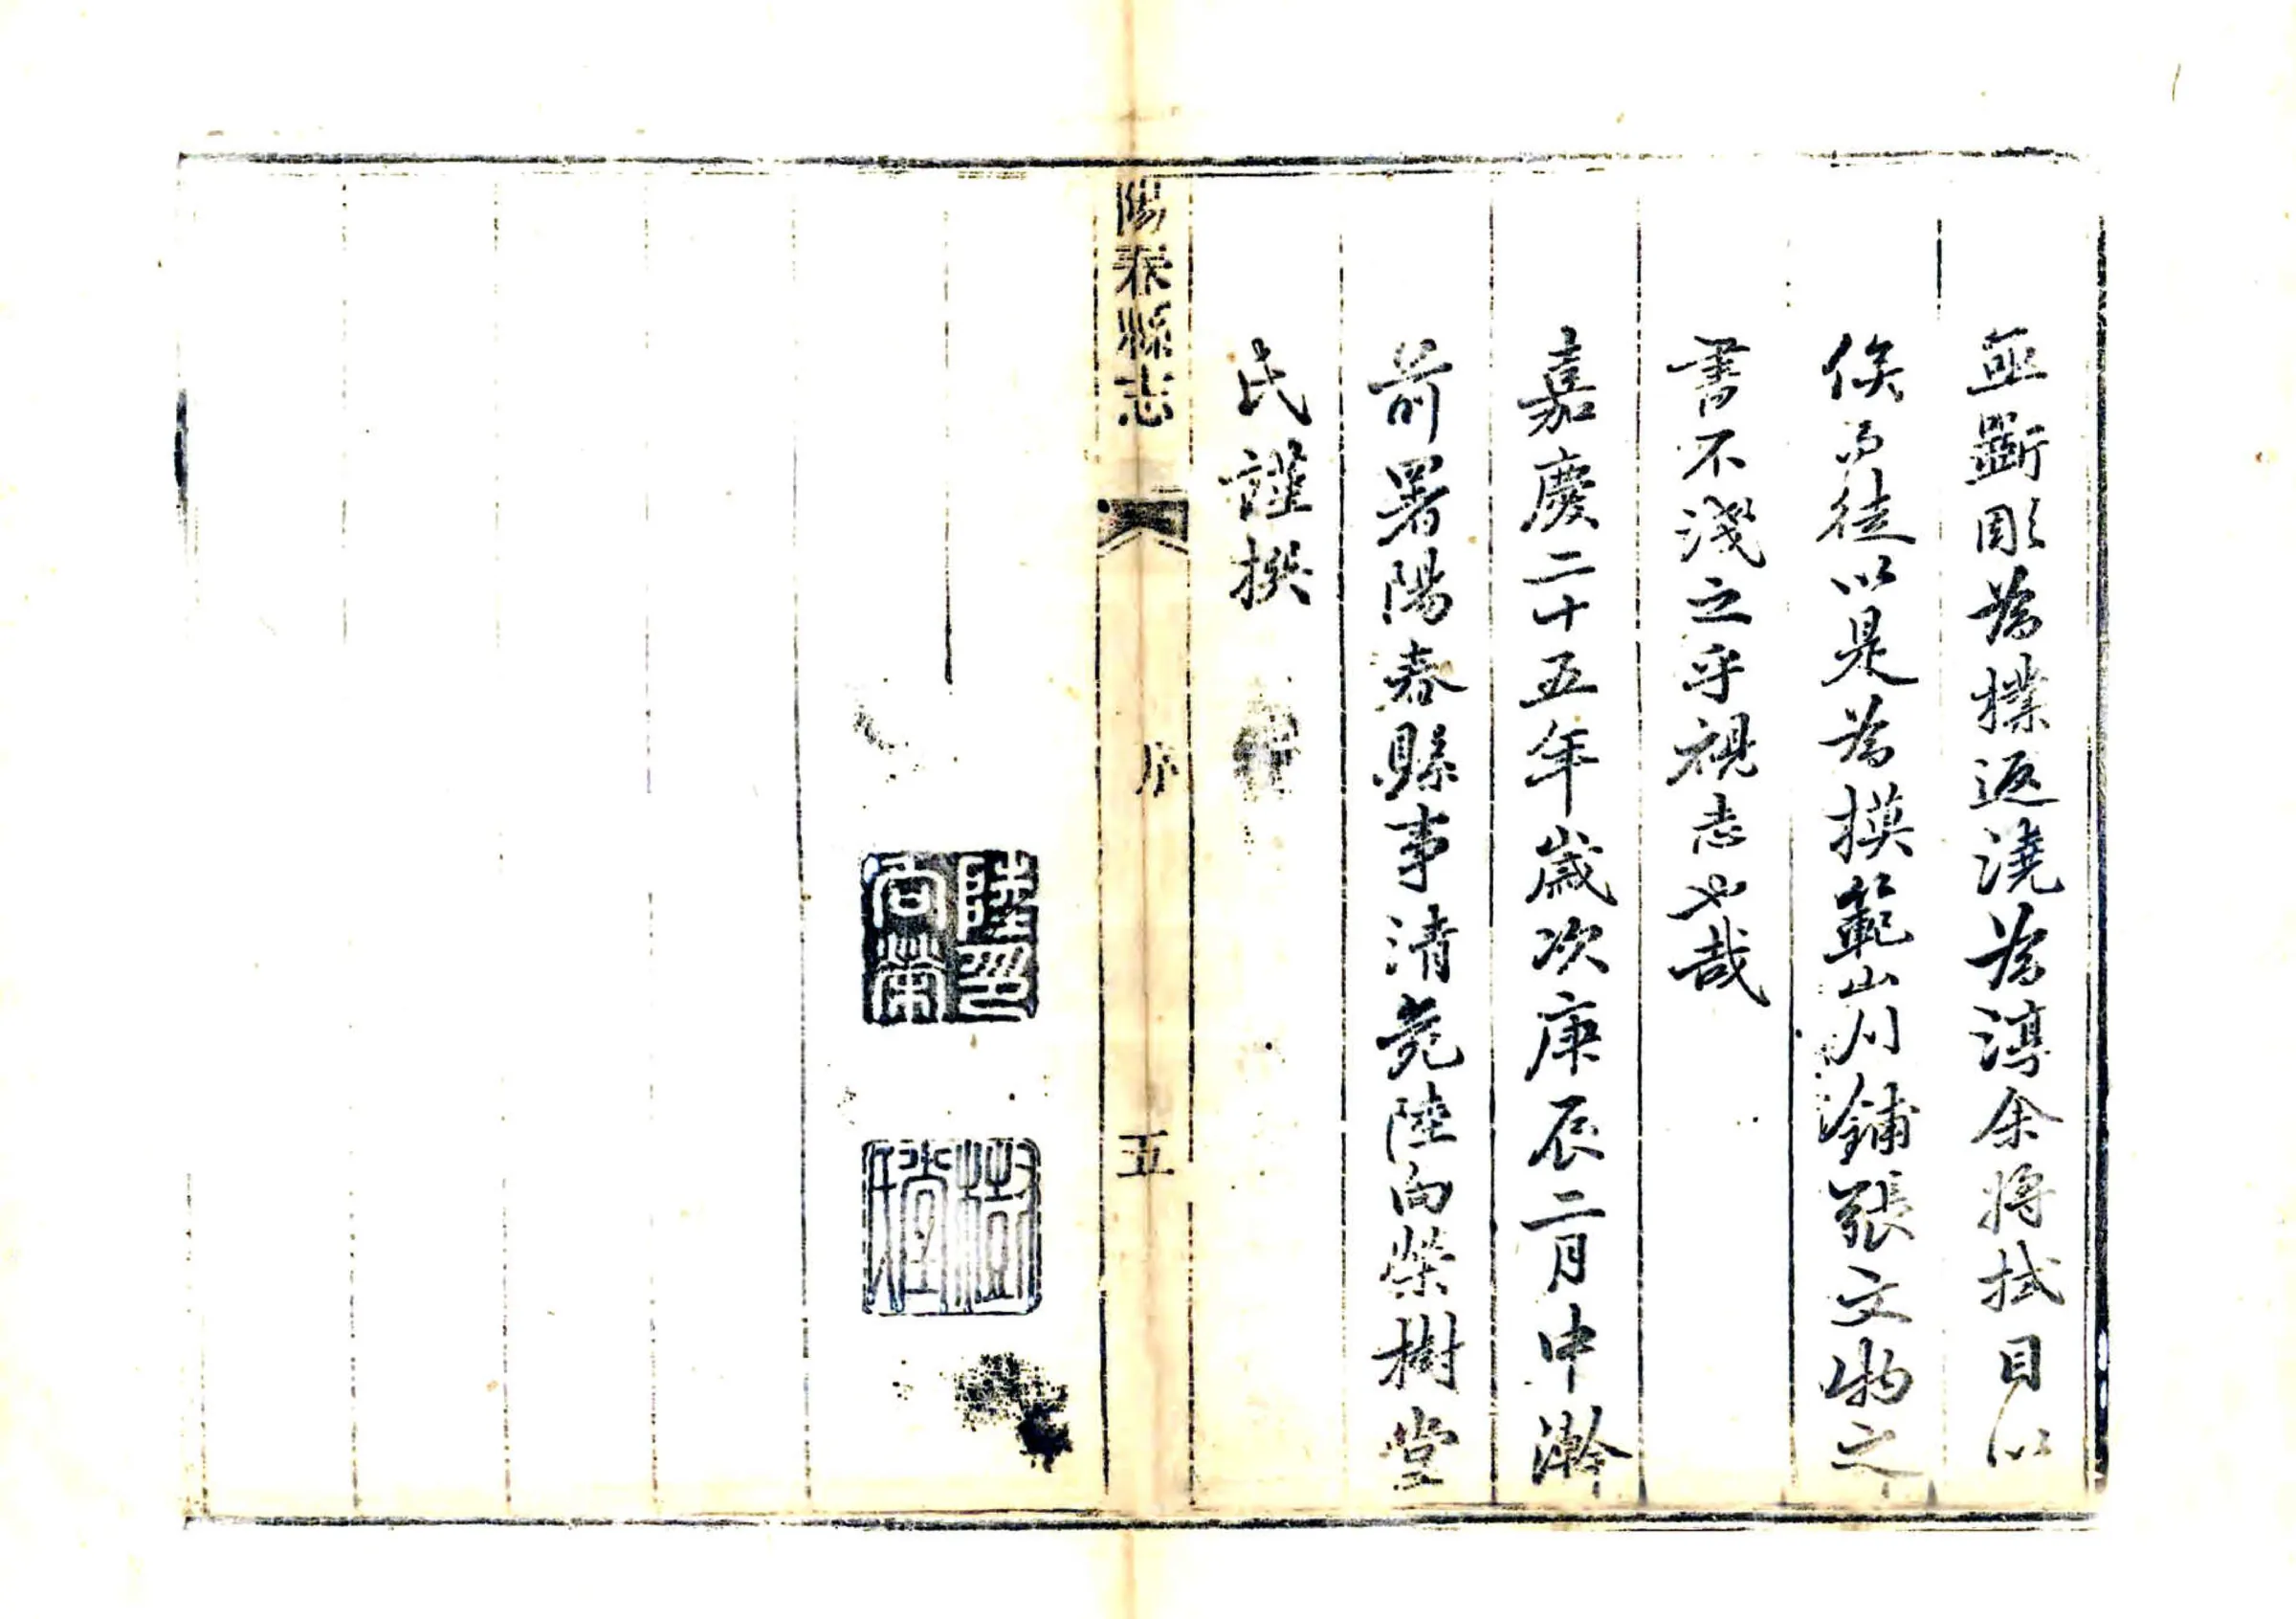 亟斷彫為樸返澆為淳余將拭目以
俟焉徒以是為摸範山川鋪張文物之
書不淺之乎視志也哉
嘉慶二十五年歲次庚辰二月中澣
前署陽春縣事清苑陸向榮樹堂
氏謹撰
陽春縣志
序
五
陸印
向榮
樹